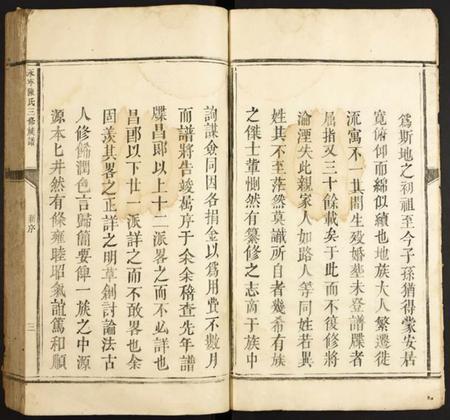 爲斯地之初祖至今子孫猶得蒙安居
寬俯仰而綿似續也地族大人繁遷徙
流寓不一其間生殁婚塟未登譜牒者
屈指又三十餘載矣于此而不復修將
淪湮失此親家人如路人等同姓若異
姓其不至茫然莫識所自者幾希有族
之傑士輩惻然有纂修之志商于族中
詢謀僉同因各捐金以爲用費不數月
而譜將告竣序于余余稽查先年譜
牒昌郎以上十二派畧之而不必詳也
昌郎以下廿一派詳之而不敢畧也余
固羨其畧之正詳之明草創討論法古
人修餙潤色言歸簡要俾一族之中源
源本匕井然有條雍睦昭氣誼篤和順
陳氏三修族譜
新序
三